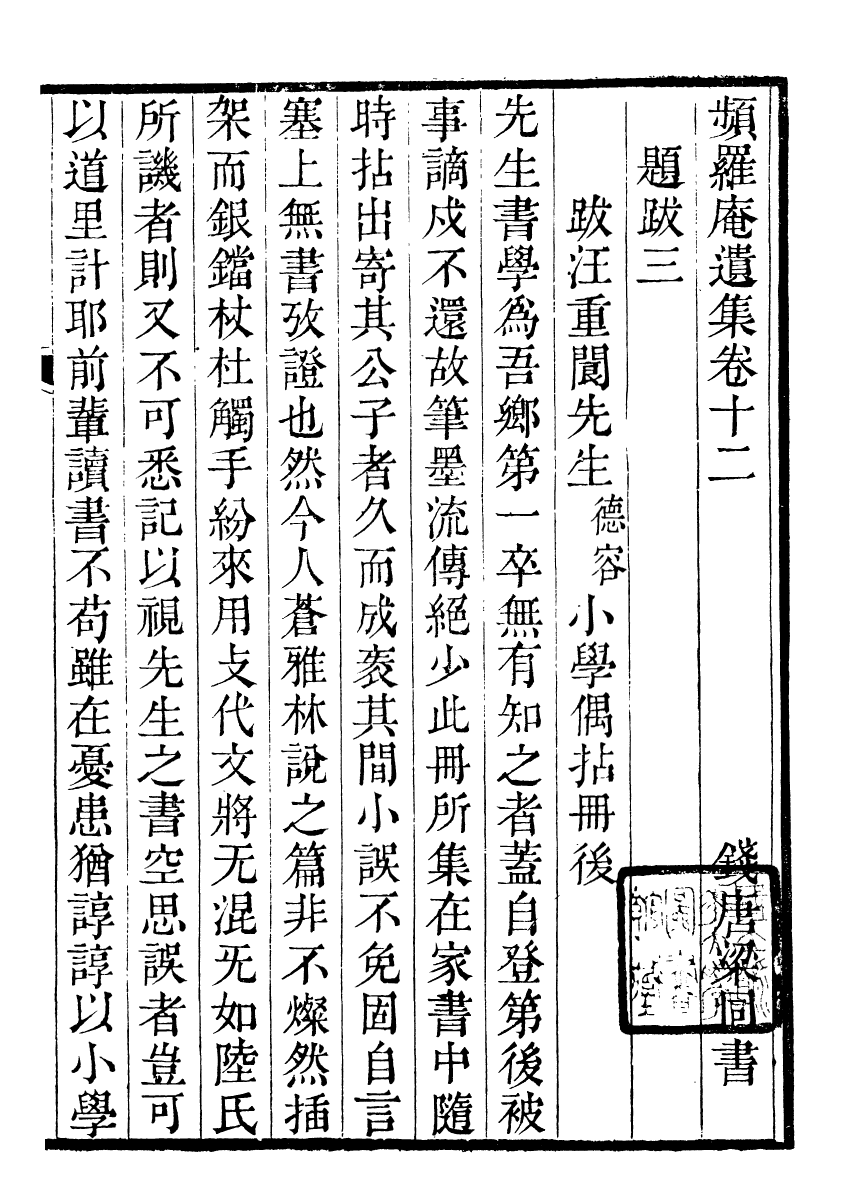 頻羅庵遺集卷十二　錢唐梁同書
題跋三
跋汪重閬先生德容小學偶拈冊後
先生書學爲吾鄉第一卒無有知之者蓋自登第後被
事謫戍不還故筆墨流傳絕少此冊所集在家書中隨
時拈出寄其公子者久而成袠其間小誤不免固自言
塞上無書攷證也然今人蒼雅林說之篇非不燦然插
架而銀鐺杖杜觸手紛來用攴代文將无混旡如陸氏
所譏者則又不可悉記以視先生之書空思誤者豈可
以道里計耶前輩讀書不苟雖在憂患猶諄諄以小學